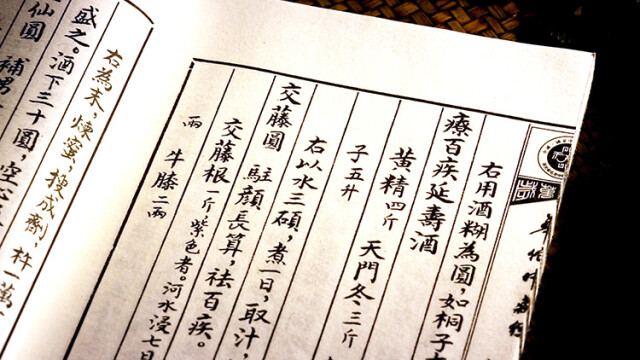 華佗
右用酒糊為圓,如桐子
療百疾延壽酒
黃精四斤 天門冬三斤
子五升
右以水三碩,煮一日,取汁,
交藤圓 駐顏長算,祛百疾。
交藤根一斤紫色者。河水浸七日
兩 牛膝二兩
右為末,煉蜜,搜成劑,杵一萬
盛之。酒下三十圓,空心
仙圓 補男